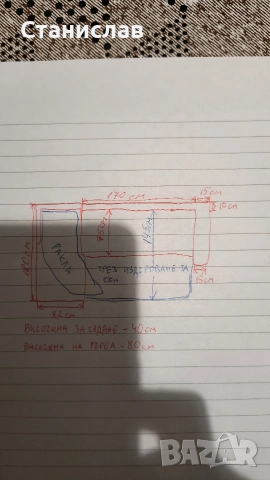 Станислав
170 см
15 см
10 см
75 см
145 см
РАКЛА
ЧРЕЗ ИЗДЪРПВАНЕ ЗА
СЪН
15 см
82 см
ВИСОЧИНА ЗА СЯДАНЕ - 40 см
ВИСОЧИНА НА ГЪРБА - 80 см
BAZAR